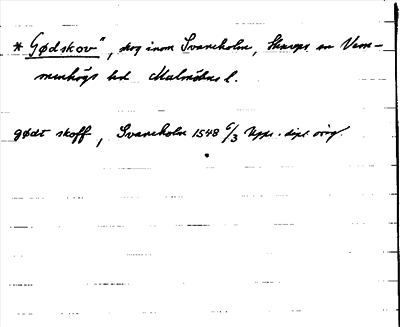 * Gødskov", skog inom Svaneholm, Skurups sn Vem-
menhögs hd Malmöhus l.
gødt skoff, Svaneholm 1548 6/3 Upps. dipl orig.